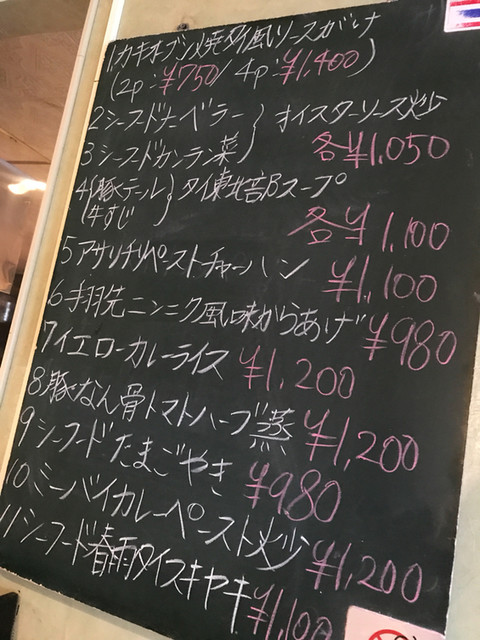 1 カキオーブン焼タイ風ソースがけ
(2p:¥750/4p:¥1,400)
2 シーフードナーベラー } オイスターソース炒
3 シーフードカンラン菜 } 各¥1,050
4 { 豚テール } タイ東北部スープ
牛すじ 各¥1,100
5 アサリチリペーストチャーハン ¥1,100
6 手羽先ニンニク風味からあげ ¥980
7 イエローカレーライス ¥1,200
8 豚なん骨トマトハーブ蒸 ¥1,200
9 シーフードたまごやき ¥980
10 ミーバイカレーペースト炒 ¥1,200
11 シーフード春雨タイスキヤキ ¥1,100